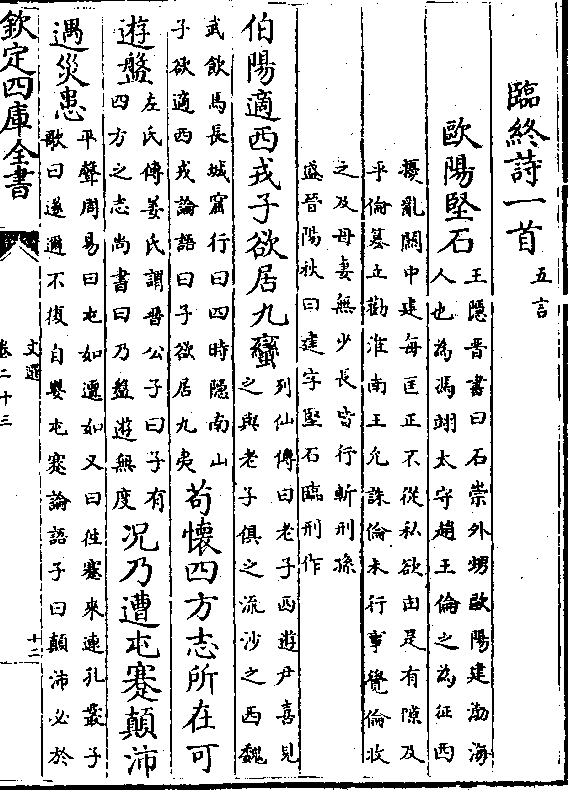 臨終詩一首
五言
歐陽堅石
王隱晉書曰石崇外甥歐陽建渤海
人也為馮翊太守趙王倫之為征西
擾亂關中建每匡正不從私欲由是有隙及
乎倫篡立勸淮南王允誅倫未行事覺倫收
之及母妻無少長皆行斬刑孫
盛晉陽秋曰建字堅石臨刑作
伯陽適西戎子欲居九蠻
列仙傳曰老子西遊尹喜見
之與老子俱之流沙之西魏
武飲馬長城窟行曰四時隱南山
子欲適西戎論語曰子欲居九夷
苟懷四方志所在可
遊盤
左氏傳姜氏謂晉公子曰子有
四方之志尚書曰乃盤遊無度
况乃遭屯蹇顛沛
遇災患
平聲周易曰屯如邅如又曰往蹇來連孔叢子
歌曰遂邇不復自嬰屯蹇論語子曰顛沛必於
欽定四庫全書
文選
卷二十三
十二